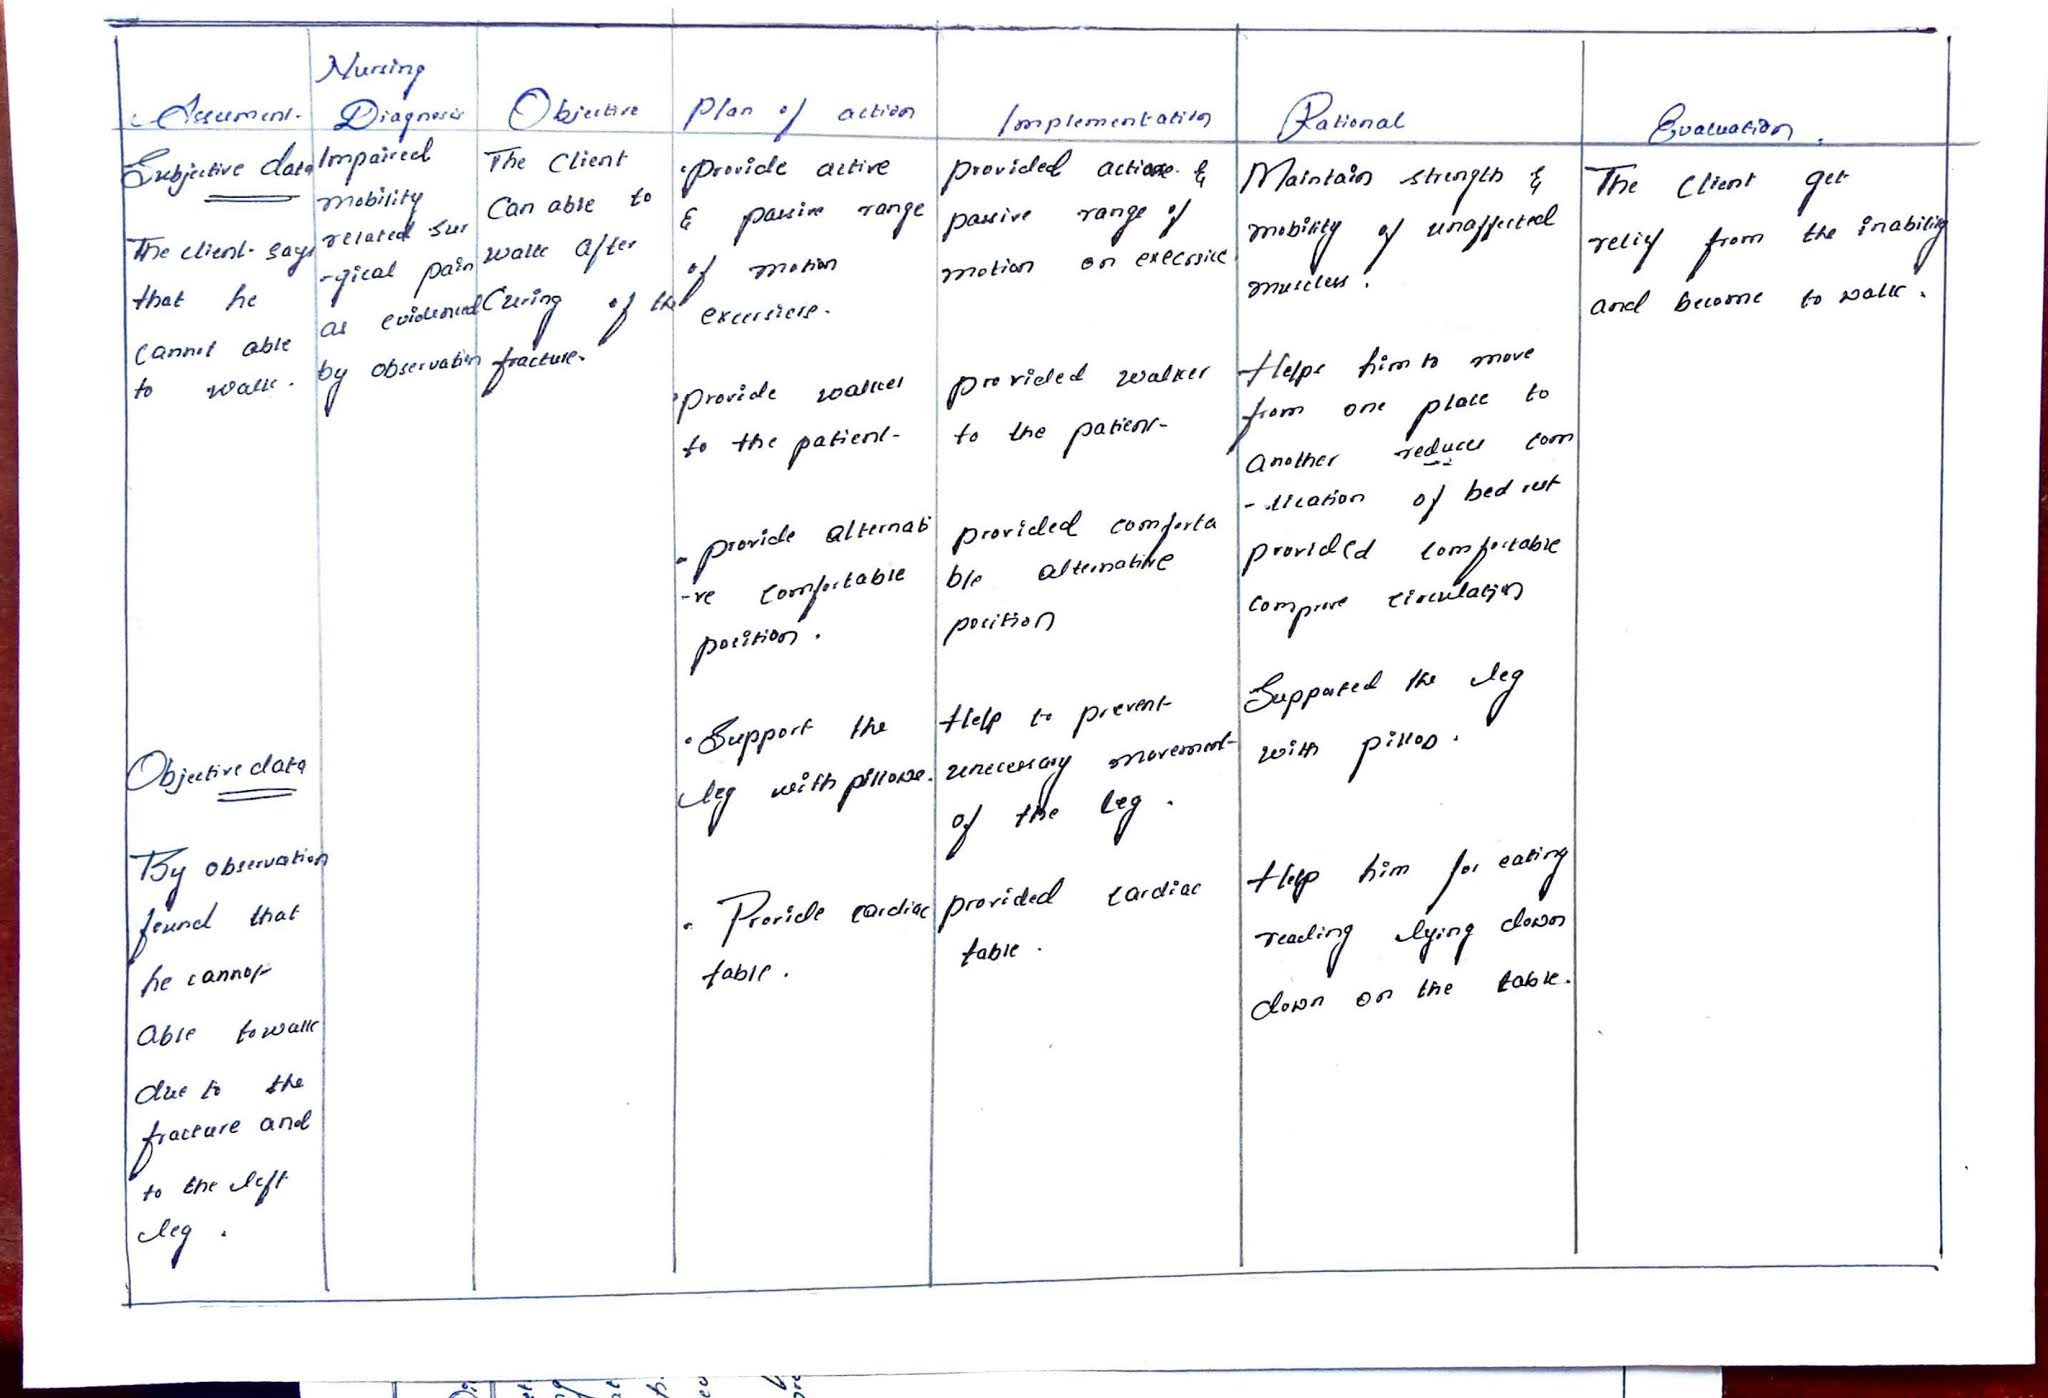 Assessment.
Nursing
Diagnosis
Objective
Plan of action
Implementation
Rational
Evaluation.
Subjective data
The client says
that he
cannot able
to walk.
Objective data
By observation
found that
he cannot
able to walk
due to the
fracture and
to the left
leg.
Impaired
mobility
related sur
-gical pain
as evidenced
by observation
The Client
Can able to
walk after
Curing of the
fracture.
• provide active
& passive range
of motion
excersiers.
• provide walker
to the patient-
• provide alternati
-ve comfortable
position.
• Support the
leg with pillows.
• Provide cardiac
table.
provided actions &
passive range of
motion on execrsice
provided walker
to the patient-
provided comforta
ble alternative
position
Help to prevent
unecessary movement
of the leg.
provided cardiac
table.
Maintain strength &
mobility of unaffected
muscles.
Helps him to move
from one place to
another reduces com
-lication of bed rest
provided comfortable
comprove circulation
Supported the leg
with pillow.
Help him for eating
reading lying down
down on the table.
The Client get
relief from the inability
and become to walk.